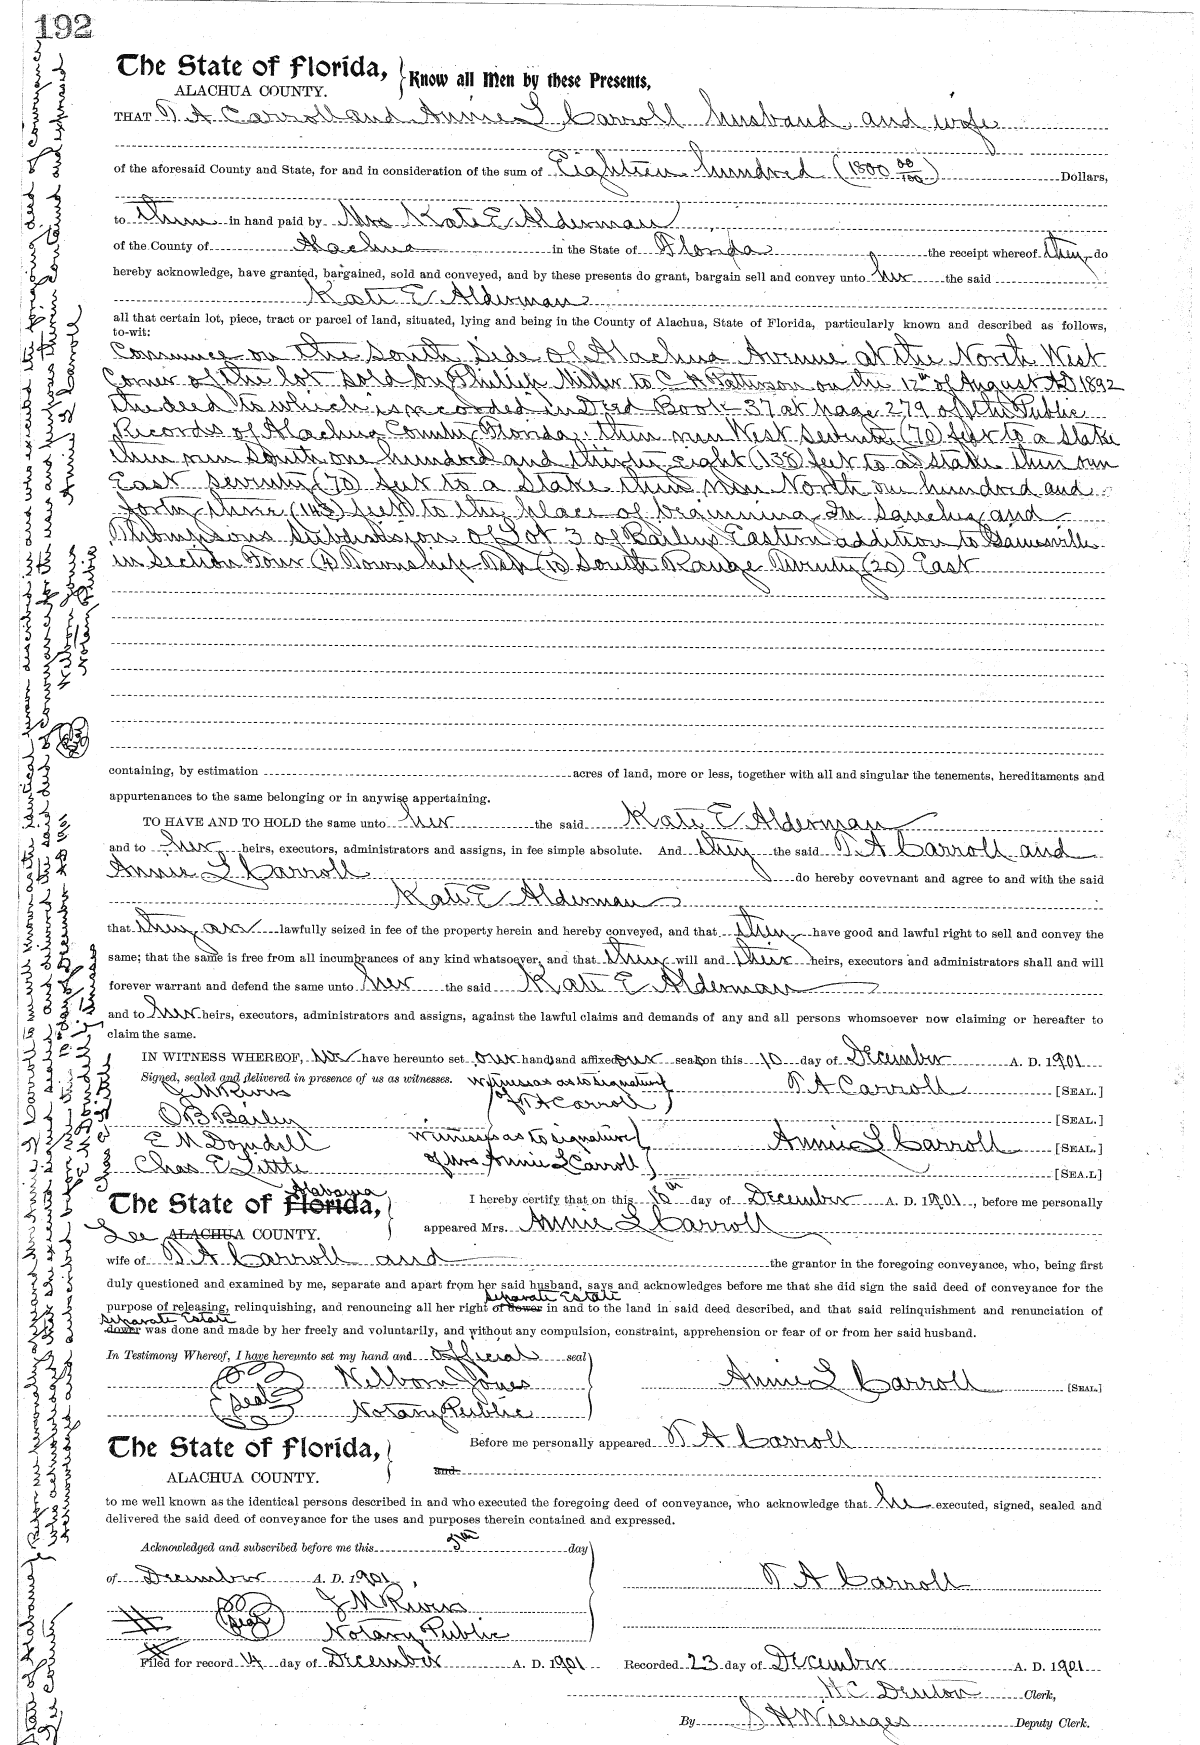 192
The State of Florida, Know all Men by these Presents,
ALACHUA COUNTY.
THAT T A Carroll and Annie L Carroll husband and wife
of the aforesaid County and State, for and in consideration of the sum of Eighteen hundred (1800 00/100) Dollars,
to them in hand paid by Mrs Kate E Alderman
of the County of Alachua in the State of Florida the receipt whereof they do
hereby acknowledge, have granted, bargained, sold and conveyed, and by these presents do grant, bargain sell and convey unto her the said
Kate E Alderman
all that certain lot, piece, tract or parcel of land, situated, lying and being in the County of Alachua, State of Florida, particularly known and described as follows,
to-wit:
Commence on the South Side of Alachua Avenue at the North West
Corner of the lot sold by Phillip Miller to C H Pattirson on the 12th of August AD 1892
the deed to which is recorded in Deed Book 37 at page 279 of the Public
Records of Alachua County Florida, then run West Seventy (70) feet to a Stake
then run South one hundred and thirty eight (138) feet to a stake then run
East seventy (70) feet to a Stake then run North one hundred and
forty three (143) feet to the place of beginning In Sanchez and
Thompsons Subdivision of Lot 3 of Baileys Eastern addition to Gainesville
in Section Four (4) Township Ten (10) South Range Twenty (20) East
containing, by estimation acres of land, more or less, together with all and singular the tenements, hereditaments and
appurtenances to the same belonging or in anywise appertaining.
TO HAVE AND TO HOLD the same unto her the said Kate E Alderman
and to her heirs, executors, administrators and assigns, in fee simple absolute. And they the said T A Carroll and
Annie L Carroll do hereby covevnant and agree to and with the said
Kate E Alderman
that they are lawfully seized in fee of the property herein and hereby conveyed, and that they have good and lawful right to sell and convey the
same; that the same is free from all incumbrances of any kind whatsoever, and that they will and their heirs, executors and administrators shall and will
forever warrant and defend the same unto her the said Kate E Alderman
and to her heirs, executors, administrators and assigns, against the lawful claims and demands of any and all persons whomsoever now claiming or hereafter to
claim the same.
IN WITNESS WHEREOF, we have hereunto set our hand and affixed our seal on this 10 day of December A. D. 1901
Signed, sealed and delivered in presence of us as witnesses. Witnesses as to signature T A Carroll [SEAL.]
J M Rivers of T A Carroll
O B Bailey [SEAL.]
E M Dowdell Witnesses as to signature Annie L Carroll [SEAL.]
Chas E Little of Mrs Annie L Carroll [SEA.L]
The State of Florida, Alabama I hereby certify that on this 10th day of December A. D. 1901, before me personally
Lee ALACHUA COUNTY. appeared Mrs. Annie L Carroll
wife of T A Carroll and the grantor in the foregoing conveyance, who, being first
duly questioned and examined by me, separate and apart from her said husband, says and acknowledges before me that she did sign the said deed of conveyance for the
separate Estate
purpose of releasing, relinquishing, and renouncing all her right of dower in and to the land in said deed described, and that said relinquishment and renunciation of
separate Estate
dower was done and made by her freely and voluntarily, and without any compulsion, constraint, apprehension or fear of or from her said husband.
In Testimony Whereof, I have hereunto set my hand and official seal
Seal Welborn Jones Annie L Carroll [SEAL.]
Notary Public
The State of Florida, Before me personally appeared T A Carroll
ALACHUA COUNTY. and
to me well known as the identical persons described in and who executed the foregoing deed of conveyance, who acknowledge that he executed, signed, sealed and
delivered the said deed of conveyance for the uses and purposes therein contained and expressed.
Acknowledged and subscribed before me this day
of December A. D. 1901, T A Carroll
Seal J M Rivers
Notary Public
Filed for record 14 day of December A. D. 1901 Recorded 23 day of December A. D. 1901
H C Denton Clerk,
By S H Wienges Deputy Clerk.
State of Alabama
Lee County